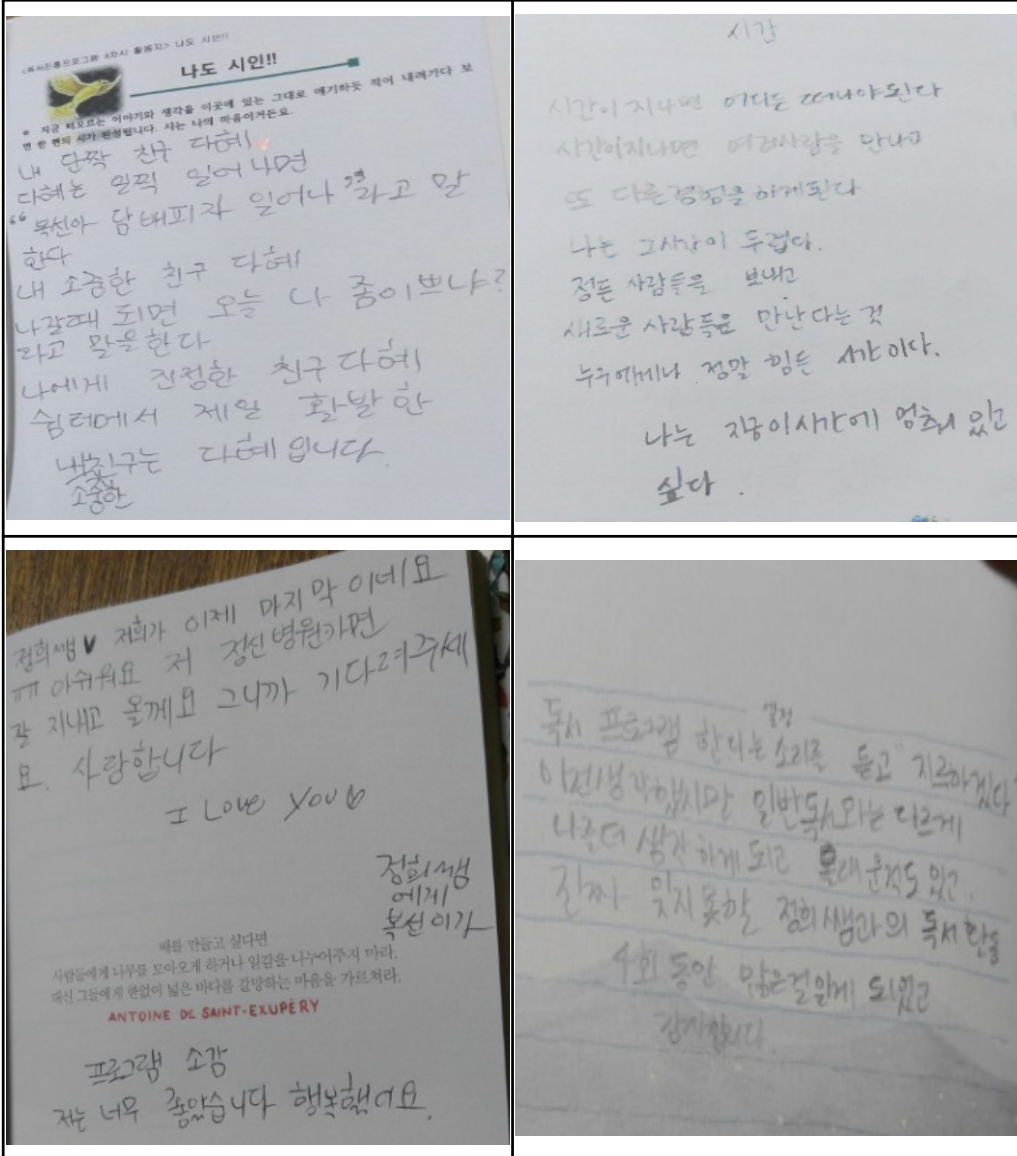 <독서진흥프로그램 4차시 활동지> 나도 시인!!
나도 시인!!
※ 지금 떠오르는 이야기와 생각을 이곳에 있는 그대로 얘기하듯 적어 내려가다 보
면 한 편의 시가 완성됩니다. 시는 나의 마음이거든요.
내 단짝 친구 다혜
다혜는 일찍 일어나면
"복선아 담배피자 일어나"라고 말
한다
내 소중한 친구 다혜
나갈때 되면 오늘 나 좀이쁘냐?
라고 말을한다
나에게 진정한 친구 다혜
쉼터에서 제일 활발한
내친구는 다혜 입니다.
소중한
시간
시간이 지나면 어디든 떠나야된다
시간이지나면 여러사람을 만나고
또 다른경험을 하게된다
나는 그시간이 두렵다.
정든 사람들을 보내고
새로운 사람들을 만난다는 것
누구에게나 정말 힘든 시간이다.
나는 지금이시간에 멈춰 있고
싶다.
정희쌤♥ 저희가 이제 마지막 이네요
ㅠㅠ 아쉬워요 저 정신병원가면
잘 지내고 올께요 그니까 기다려주세
요. 사랑합니다
I Love You♡
정희쌤
에게
복선이가
배를 만들고 싶다면
사람들에게 나무를 모아오게 하거나 일감을 나누어주지 마라.
대신 그들에게 한없이 넓은 바다를 갈망하는 마음을 가르쳐라.
ANTOINE DE SAINT-EXUPÉRY
프로그램 소감
저는 너무 좋았습니다 행복했어요.
독서 프로그램 한다는 소리를 듣고 "지루하겠다"
이런생각했지만 일반독서와는 다르게
나름더 생각하게 되고 몰래운적도 있고..
진짜 잊지못할 정희쌤과의 독서활동
4회 동안 많은걸알게 되었고
감사합니다.